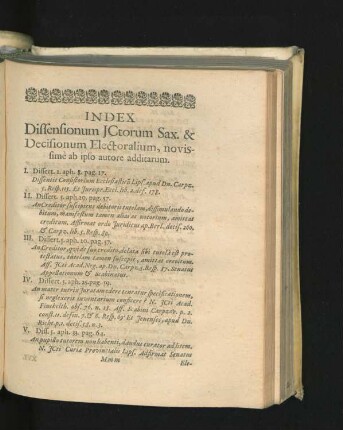 INDEX
Dissensionum JCtorum Sax. &
Decisionum Electoralium, novis-
sime ab ipso autore additarum.
I. Dissert. 1. aph. 8. pag. 17.
Dissensit Consistorium Ecclesiasticũ Lips. apud Dn. Carpz.
II. Dissert. 3. aph. 29. pag. 37.
An Creditor suscipiens debitoris tutelam, dissimulando de-
bitum, manifestum tamen aliàs et notorium, amittat
creditum. Affirmat ordo Juridicus ap. Berl. decis. 260.
& Carpz. lib. 5. Resp. 89.
III. Dissert. 3. aph. 29. pag. 37.
An Creditor, qui de suo credito, delata sibi tutela est pro-
testatus, tutelam tamen suscepit, amittat creditum.
Aff. JCti Acad. ap. Dn. Carpz. 5. Resp. 87. Senatus
Appellationum & Scabinatus.
IV. Dissert. 3. aph. 35. pag. 39.
An mater tutrix juratam edere teneatur specificationem,
si neglexerit inventarium conficere? N. JCti Acad.
Finckelth. obs. 76. n. 15. Aff. Scabini Carpz. p. 2.
const. 11. defin. 7. & 6. Resp. 69. Et Jenenses, apud Dn.
Richt. p. 1. decis. 15. n. 3.
V. Diss. 3. aph. 39. pag. 62.
An pupillo tutorem non habenti, dandus curator ad litem.
N. JCti Curia Provincialis Lips. Affirmat Senatus
Mmm
Ele-